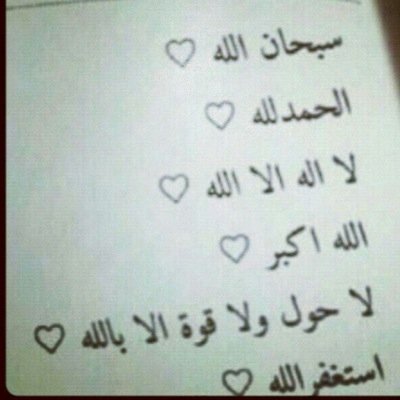 سبحان الله ♡
الحمدلله ♡
لا اله الا الله ♡
الله اكبر ♡
لا حول ولا قوة الا بالله ♡
استغفر الله ♡